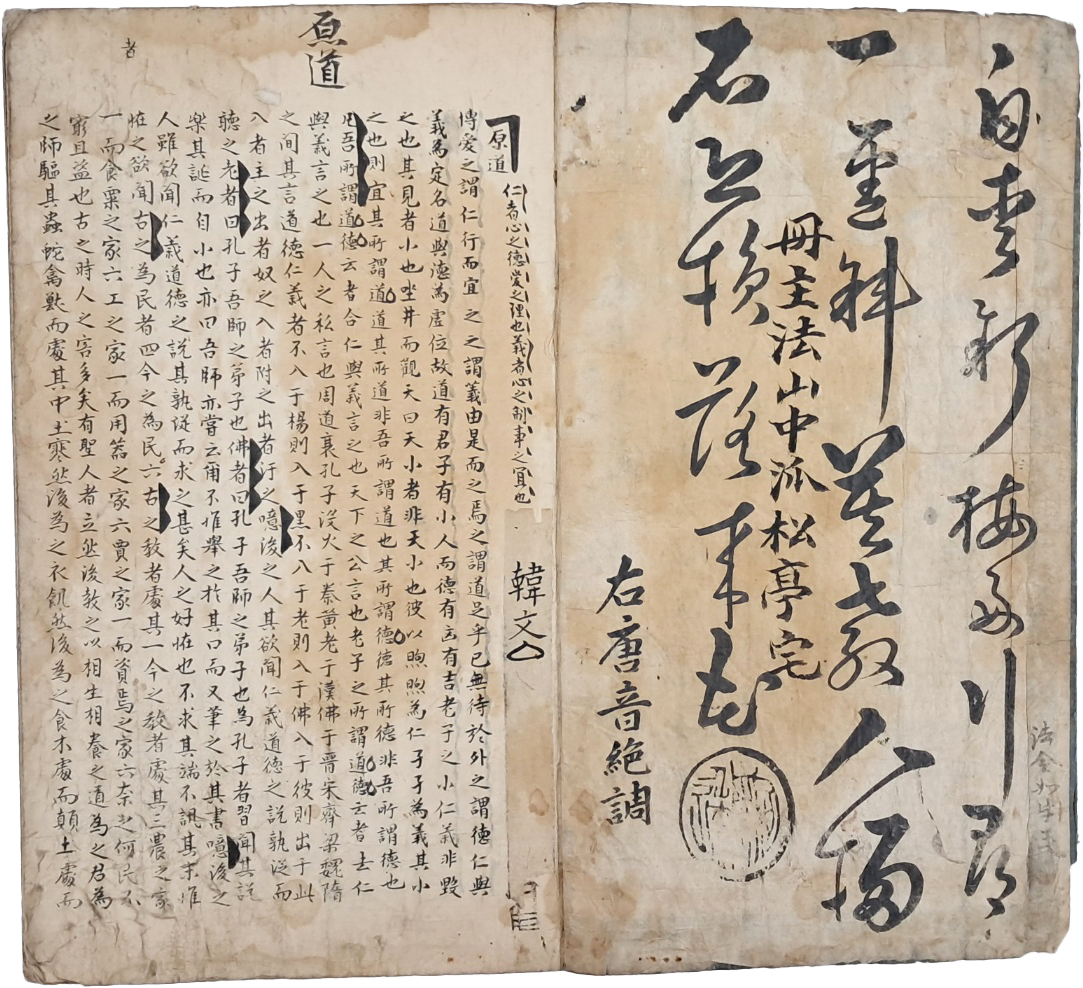 自愛新梅好行尋
一逕斜莫教人掃
石恐損落來花
冊主法山中派松亭宅
右唐音絶調
原道
者
原道 仁者心之德愛之理也義者心之制事之宜也
韓文公
博愛之謂仁行而宜之之謂義由是而之焉之謂道足乎已無待於外之謂德仁與
義為定名道與德為虛位故道有君子有小人而德有凶有吉老子之小仁義非毀
之也其見者小也坐井而觀天曰天小者非天小也彼以煦煦為仁孑孑為義其小
之也則宜其所謂道道其所道非吾所謂道也其所謂德德其所德非吾所謂德也
凡吾所謂道德云者合仁與義言之也天下之公言也老子之所謂道德云者去仁
與義言之也一人之私言也周道衰孔子没火于秦黃老于漢佛于晋宋齊梁魏隋
之間其言道德仁義者不入于楊則入于墨不入于老則入于佛入于彼則出于此
入者主之出者奴之入者附之出者汙之噫後之人其欲聞仁義道德之説孰從而
聽之老者曰孔子吾師之弟子也佛者曰孔子吾師之弟子也為孔子者習聞其説
樂其誕而自小也亦曰吾師亦嘗云爾不惟舉之於其口而又筆之於其書噫後之
人雖欲聞仁義道德之說其孰從而求之甚矣人之好怪也不求其端不訊其末惟
怪之欲聞古之為民者四今之為民六古之敎者處其一今之敎者處其三農之家
一而食粟之家六工之家一而用器之家六賈之家一而資焉之家六奈之何民不
窮且盜也古之時人之害多矣有聖人者立然後敎之以相生相養之道為之君為
之師驅其蟲蛇禽獸而處其中土寒然後為之衣飢然後為之食木處而顛土處而